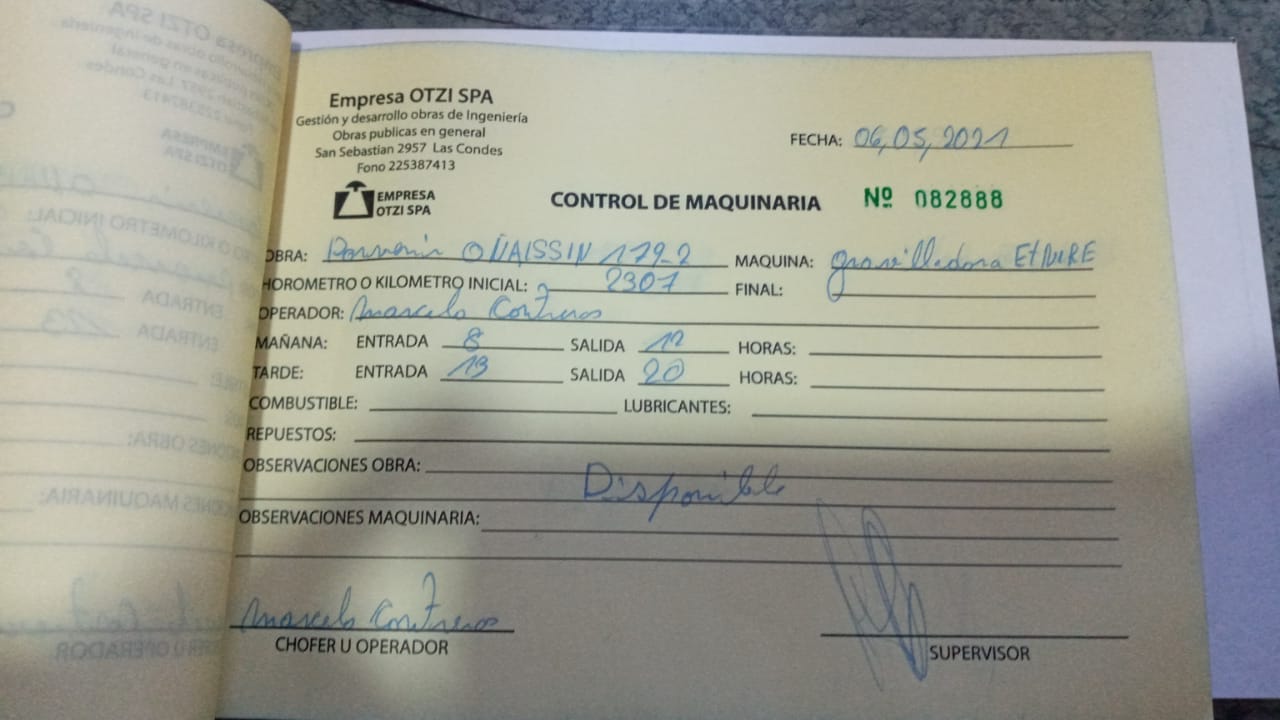 Empresa OTZI SPA
Gestión y desarrollo obras de Ingeniería
Obras publicas en general
San Sebastian 2957 Las Condes
Fono 225387413
FECHA: 06,05,2021
EMPRESA
OTZI SPA
CONTROL DE MAQUINARIA Nº 082888
OBRA: Porvenir OÑAISSIN 179-2 MAQUINA: gravilladora
HOROMETRO O KILOMETRO INICIAL: 2307 FINAL:
OPERADOR: Marcelo Contreras
MAÑANA: ENTRADA 8 SALIDA 12 HORAS:
TARDE: ENTRADA 13 SALIDA 20 HORAS:
COMBUSTIBLE: LUBRICANTES:
REPUESTOS:
OBSERVACIONES OBRA:
Disponible
OBSERVACIONES MAQUINARIA:
Marcelo Contreras
CHOFER U OPERADOR
SUPERVISOR